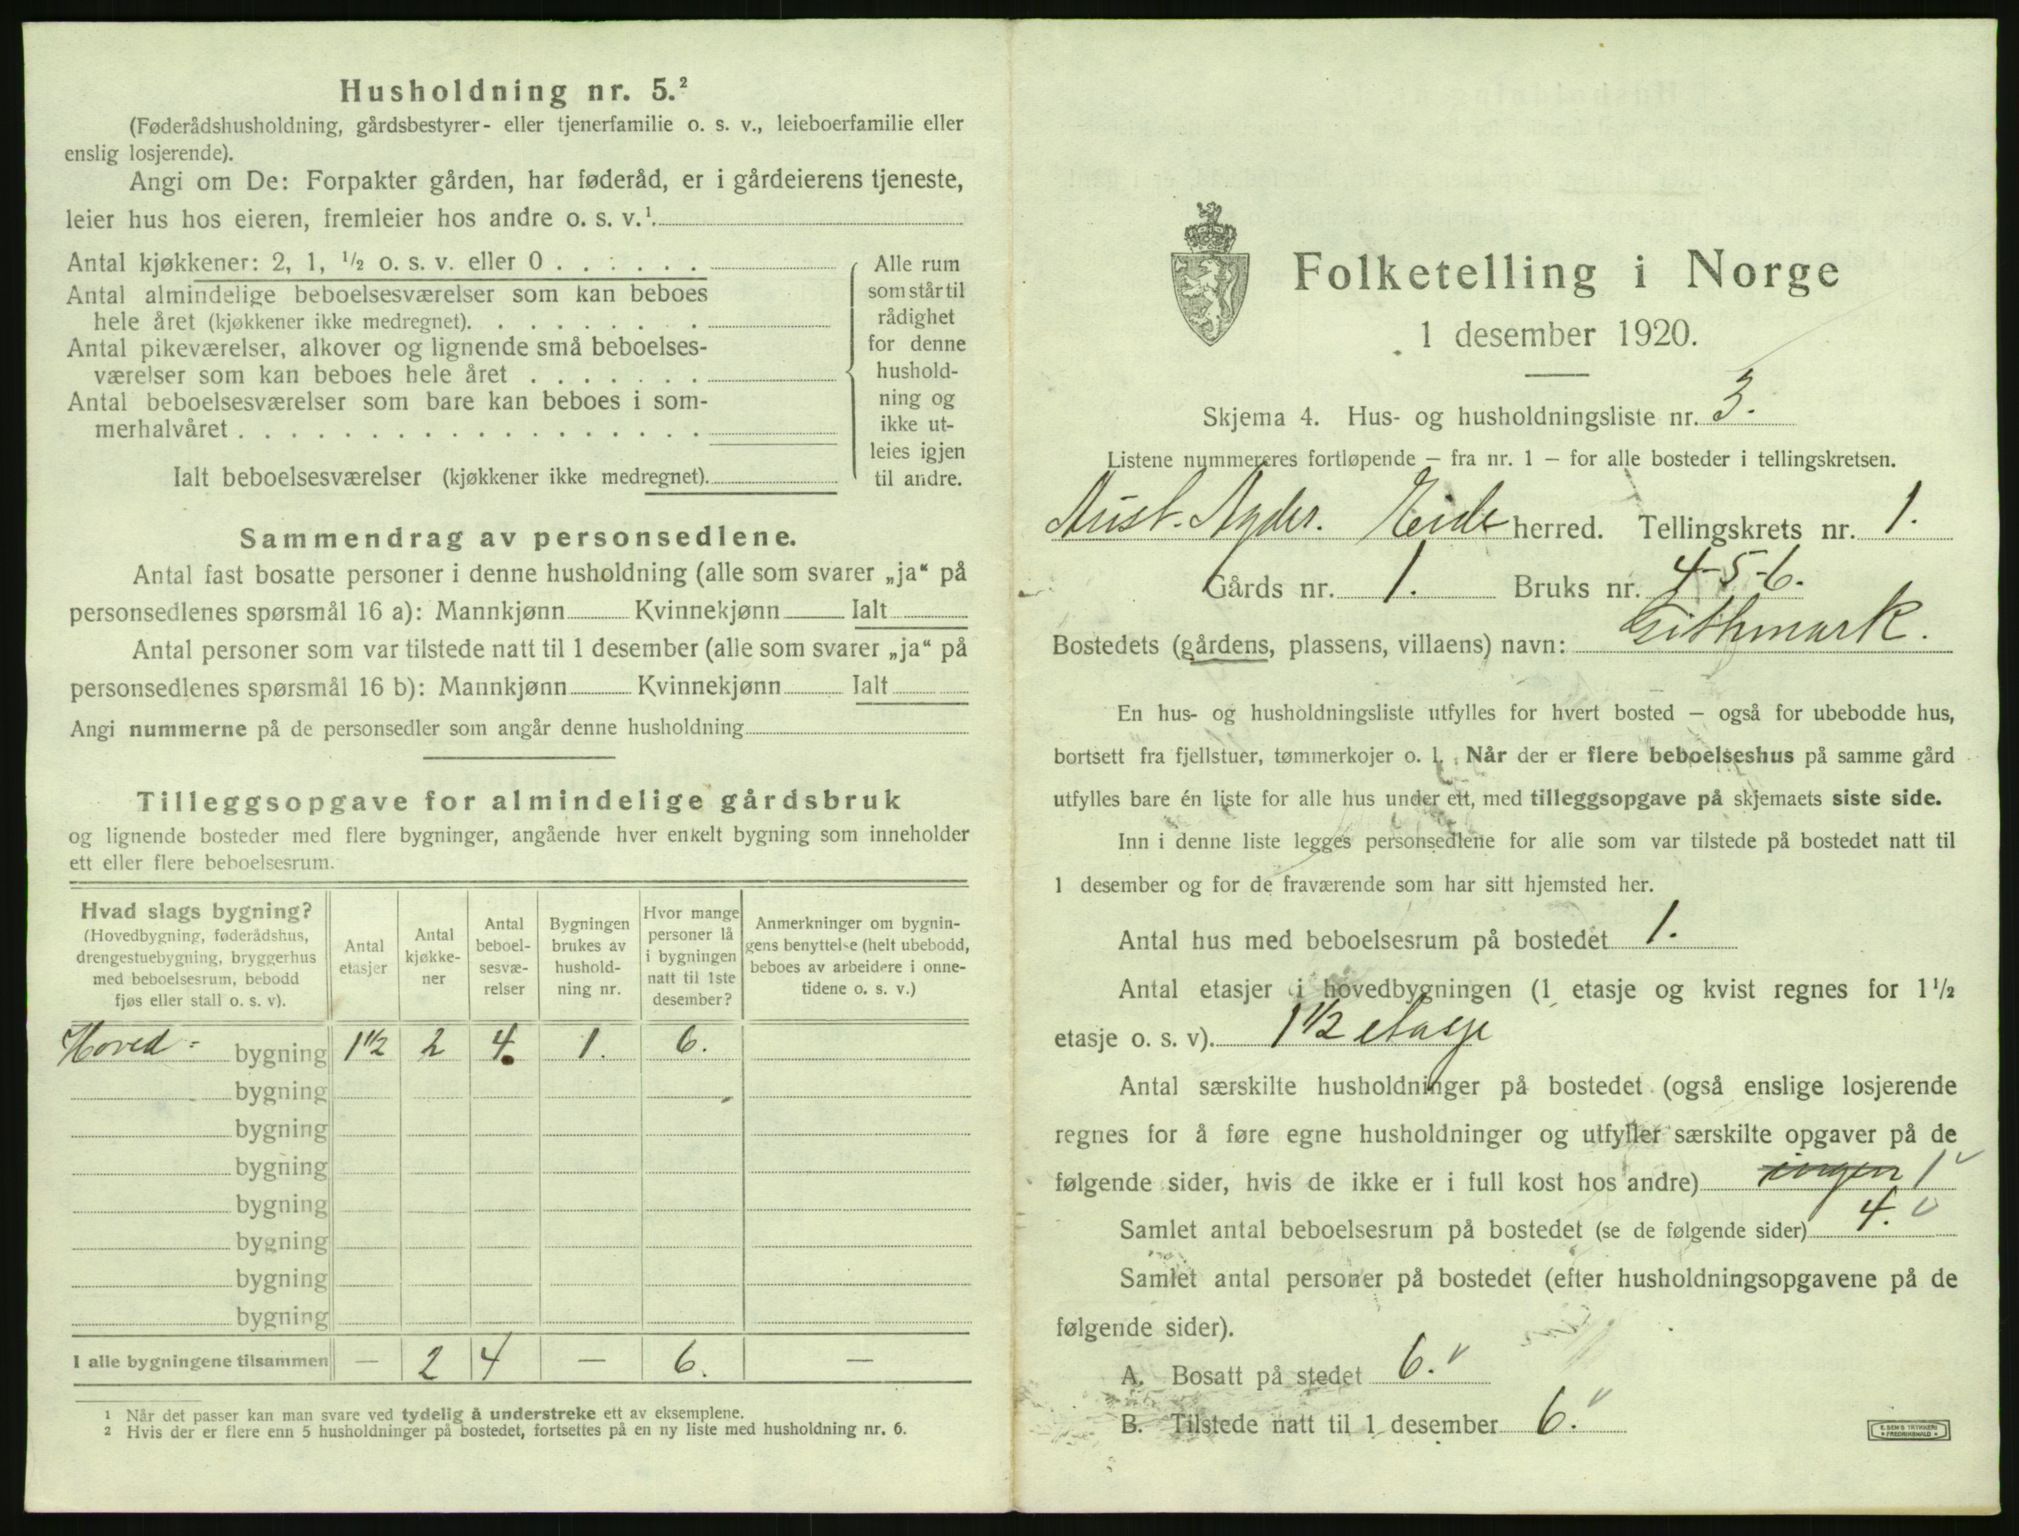 Husholdning nr. 5.²
(Føderådshusholdning, gårdsbestyrer- eller tjenerfamilie o. s. v., leieboerfamilie eller
enslig losjerende).
Angi om De: Forpakter gården, har føderåd, er i gårdeierens tjeneste,
leier hus hos eieren, fremleier hos andre o. s. v.¹
Antal kjøkkener: 2, 1, ½ o. s. v. eller 0
Antal almindelige beboelsesværelser som kan beboes
hele året (kjøkkener ikke medregnet)
Antal pikeværelser, alkover og lignende små beboelses-
værelser som kan beboes hele året
Antal beboelsesværelser som bare kan beboes i som-
merhalvåret
Ialt beboelsesværelser (kjøkkener ikke medregnet)
Alle rum
som står til
rådighet
for denne
hushold-
ning og
ikke ut-
leies igjen
til andre.
Sammendrag av personsedlene.
Antal fast bosatte personer i denne husholdning (alle som svarer „ja“ på
personsedlenes spørsmål 16 a): Mannkjønn Kvinnekjønn Ialt
Antal personer som var tilstede natt til 1 desember (alle som svarer „ja“ på
personsedlenes spørsmål 16 b): Mannkjønn Kvinnekjønn Ialt
Angi nummerne på de personsedler som angår denne husholdning
Tilleggsopgave for almindelige gårdsbruk
og lignende bosteder med flere bygninger, angående hver enkelt bygning som inneholder
ett eller flere beboelsesrum.
Hvad slags bygning?
(Hovedbygning, føderådshus,
drengestuebygning, bryggerhus
med beboelsesrum, bebodd
fjøs eller stall o. s. v).
Antal
etasjer
Antal
kjøkke-
ner
Antal
beboel-
sesvæ-
relser
Bygningen
brukes av
hushold-
ning nr.
Hvor mange
personer lå
i bygningen
natt til 1ste
desember?
Anmerkninger om bygnin-
gens benyttelse (helt ubebodd,
beboes av arbeidere i onne-
tidene o. s. v.)
Hoved- bygning 1½ 2 4. 1. 6.
bygning
bygning
bygning
bygning
bygning
bygning
bygning
I alle bygningene tilsammen — 2 4 — 6. —
¹ Når det passer kan man svare ved tydelig å understreke ett av eksemplene.
² Hvis der er flere enn 5 husholdninger på bostedet, fortsettes på en ny liste med husholdning nr. 6.
Folketelling i Norge
1 desember 1920.
Skjema 4. Hus- og husholdningsliste nr. 3.
Listene nummereres fortløpende — fra nr. 1 — for alle bosteder i tellingskretsen.
Aust. Agder. Eide herred. Tellingskrets nr. 1.
Gårds nr. 1. Bruks nr. 4-5-6.
Bostedets (gårdens, plassens, villaens) navn: Githmark.
En hus- og husholdningsliste utfylles for hvert bosted — også for ubebodde hus,
bortsett fra fjellstuer, tømmerkojer o. l. Når der er flere beboelseshus på samme gård
utfylles bare én liste for alle hus under ett, med tilleggsopgave på skjemaets siste side.
Inn i denne liste legges personsedlene for alle som var tilstede på bostedet natt til
1 desember og for de fraværende som har sitt hjemsted her.
Antal hus med beboelsesrum på bostedet 1.
Antal etasjer i hovedbygningen (1 etasje og kvist regnes for 1½
etasje o. s. v). 1½ etasje
Antal særskilte husholdninger på bostedet (også enslige losjerende
regnes for å føre egne husholdninger og utfyller særskilte opgaver på de
følgende sider, hvis de ikke er i full kost hos andre) ingen 1
Samlet antal beboelsesrum på bostedet (se de følgende sider) 4.
Samlet antal personer på bostedet (efter husholdningsopgavene på de
følgende sider).
A. Bosatt på stedet 6.
B. Tilstede natt til 1 desember 6.